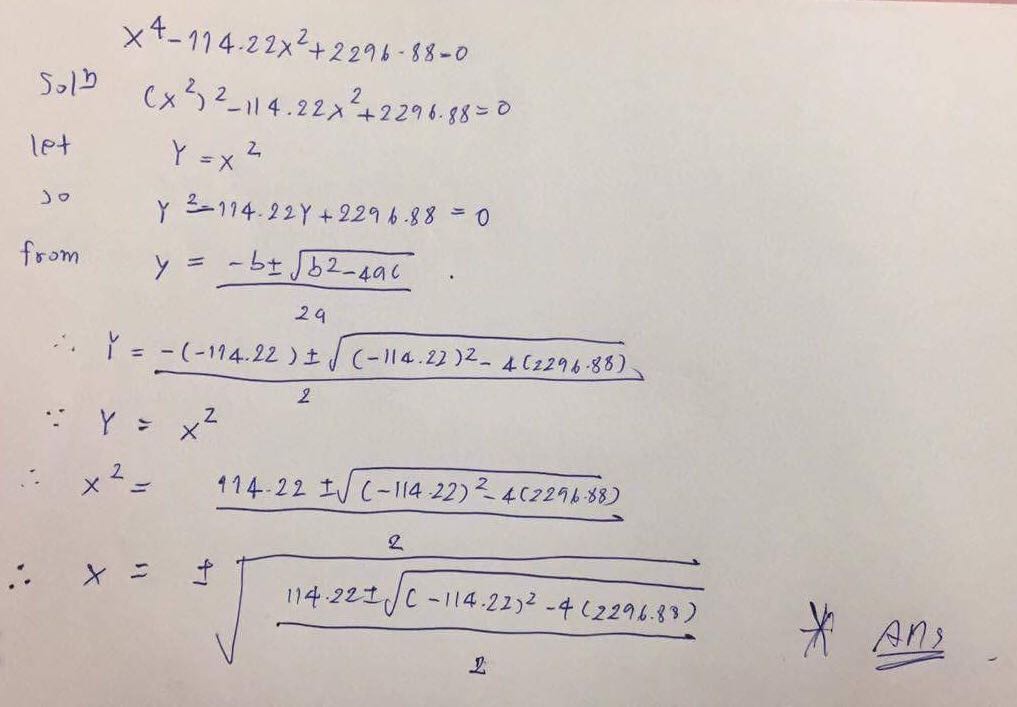 x⁴-114.22x²+2296.88=0
Solⁿ (x²)²-114.22x²+2296.88=0
let Y=x²
so Y²-114.22Y+2296.88=0
from y = (-b±√(b²-4ac))/2a.
∴ Y = (-(-114.22)±√((-114.22)²-4(2296.88)))/2
∵ Y = x²
∴ x² = (114.22±√((-114.22)²-4(2296.88)))/2
∴ x = ±√((114.22±√((-114.22)²-4(2296.88)))/2) * Ans